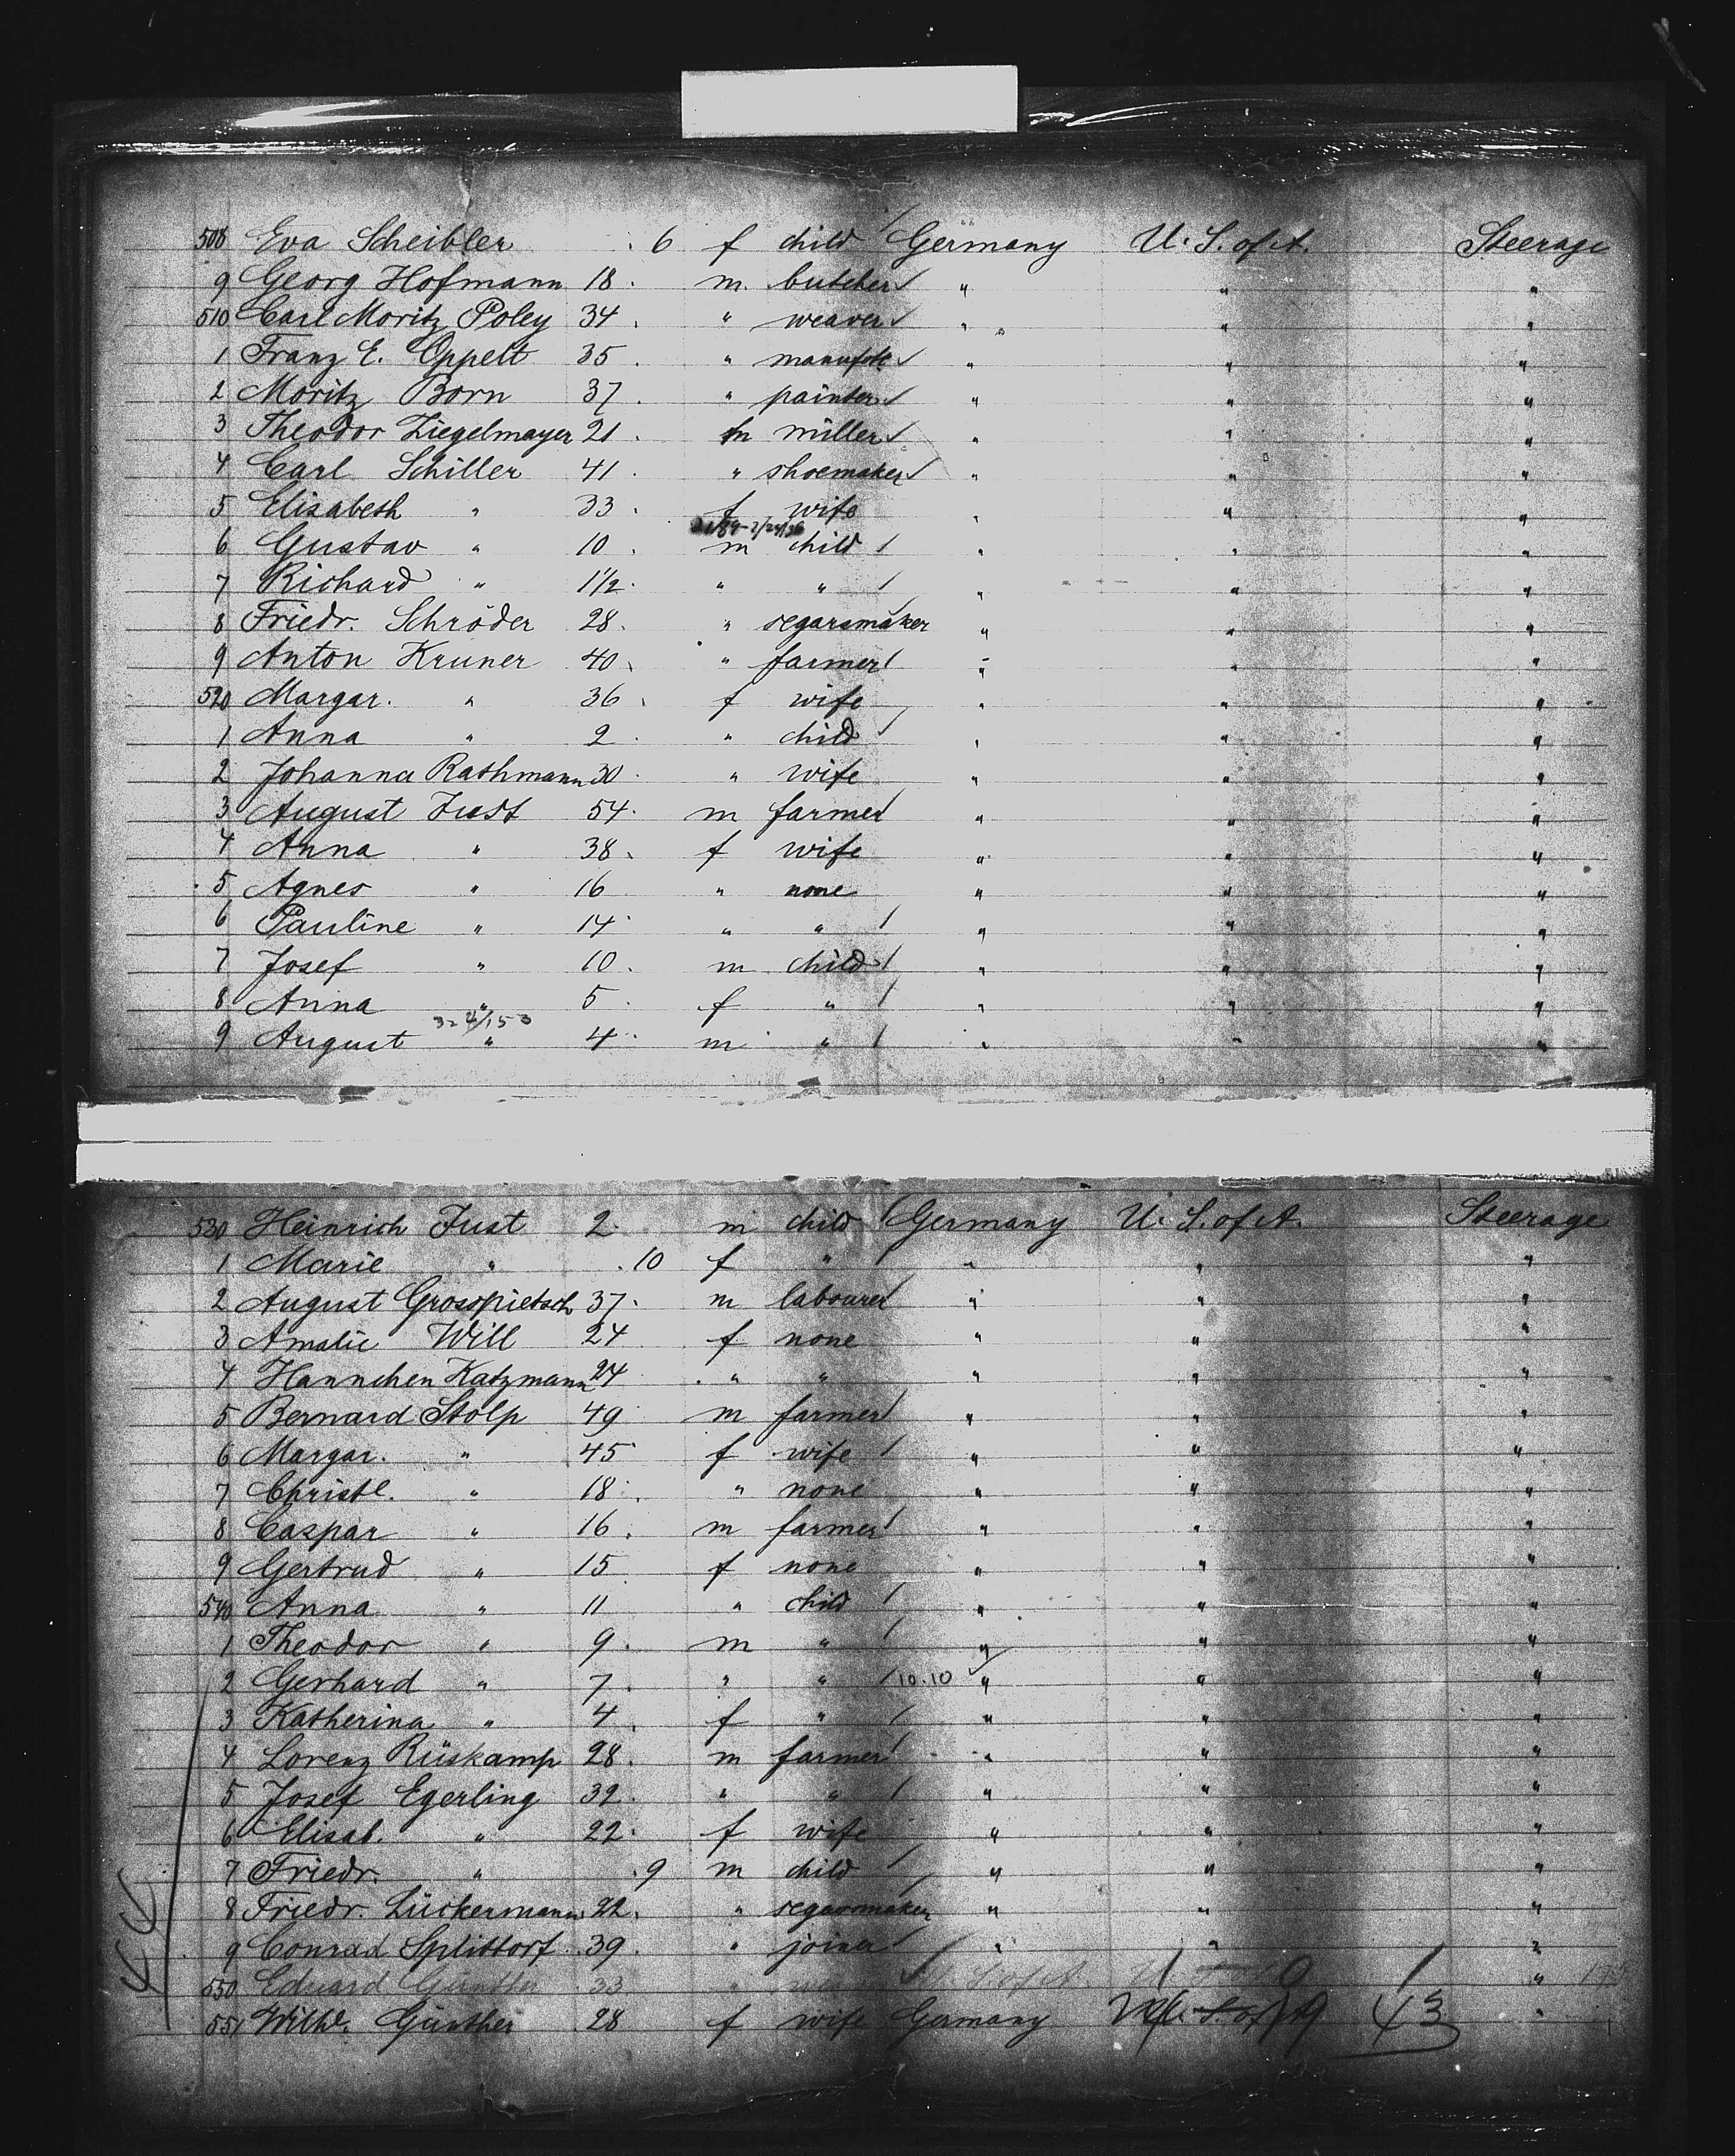 508 Eva Scheibler 6 f child Germany U. S. of A. Steerage
9 Georg Hofmann 18 m. butcher " " "
510 Carl Moritz Poley 34 " weaver " " "
1 Franz E. Oppelt 35 " manufctr " " "
2 Moritz Born 37 " painter " " "
3 Theodor Ziegelmayer 21 m miller " " "
4 Carl Schiller 41 " shoemaker " " "
5 Elisabeth " 33 f wife " " "
6 Gustav " 10 m child " " "
7 Richard " 1 1/2 " " " " "
8 Friedr. Schröder 28 " segarsmaker " " "
9 Anton Kruner 40 " farmer " " "
520 Margar. " 36 f wife " " "
1 Anna " 2 " child " " "
2 Johanna Rathmann 30 " wife " " "
3 August Just 54 m farmer " " "
4 Anna " 38 f wife " " "
5 Agnes " 16 " none " " "
6 Pauline " 14 " " " " "
7 Josef " 10 m child " " "
8 Anna " 5 f " " " "
9 August " 4 m " " " "
530 Heinrich Just 2 m child Germany U. S. of A. Steerage
1 Marie " 10 f " " " "
2 August Grosspietsch 37 m labourer " " "
3 Amalie Will 24 f none " " "
4 Hannchen Katzmann 24 " " " " "
5 Bernard Stolp 49 m farmer " " "
6 Margar. " 45 f wife " " "
7 Christe. " 18 " none " " "
8 Caspar " 16 m farmer " " "
9 Gertrud " 15 f none " " "
540 Anna " 11 " child " " "
1 Theodor " 9 m " " " "
2 Gerhard " 7 " " 10.10 " " "
3 Katherina " 4 f " " " "
4 Lorenz Rüskamp 28 m farmer " " "
5 Josef Egerling 32 " " " " "
6 Elisab. " 22 f wife " " "
7 Friedr. " 9 m child " " "
8 Friedr. Lückermann 22 " segarsmaker " " "
9 Conrad Splittorf 39 " joiner " " "
550 Eduard Günther 33 " U. S. of A. "
551 Wilhe. Günther 28 f wife Germany 43 "